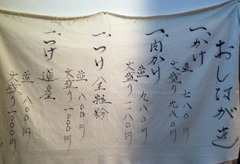 おしながき
一、かけ
並 七八〇円
大盛り 九八〇円
一、肉かけ
並 九八〇円
大盛り 一一八〇円
一、つけ(全粒粉)
並 八〇〇円
大盛り 一〇〇〇円
一、つけ 道産
並 八〇〇円
大盛り 一〇〇〇円